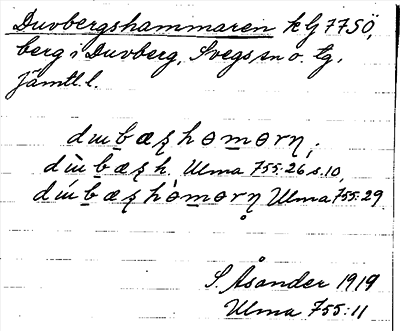 Duvbergshammaren k G 77 SÖ,
berg i Duvberg, Svegs sn o. tg,
Jämtl. l.
dɯbæʂhɵmɵrη,
dɯ̀bæʂh. Ulma 755:26 s. 10,
dɯ́bæʂh̀ɵmɵrη Ulma 755:29
S. Åsander 1919
Ulma 755:11